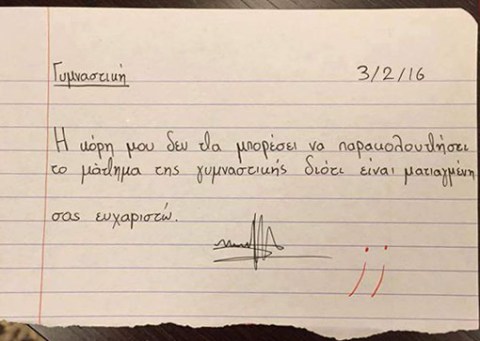 Γυμναστική 3/2/16
Η κόρη μου δεν θα μπορέσει να παρακολουθήσει
το μάθημα της γυμναστικής διότι είναι ματιαγμένη
σας ευχαριστώ.
jj